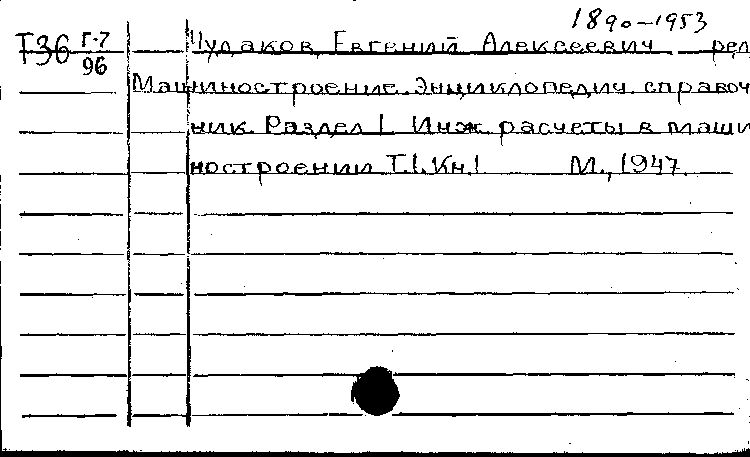 1890-1953
Т36 Г-7 Чудаков, Евгений Алексеевич ред
96 Машиностроение. Энциклопедич. справоч
ник. Раздел I. Инж. расчеты в маши
ностроении Т.1. Кн.1 М., 1947.